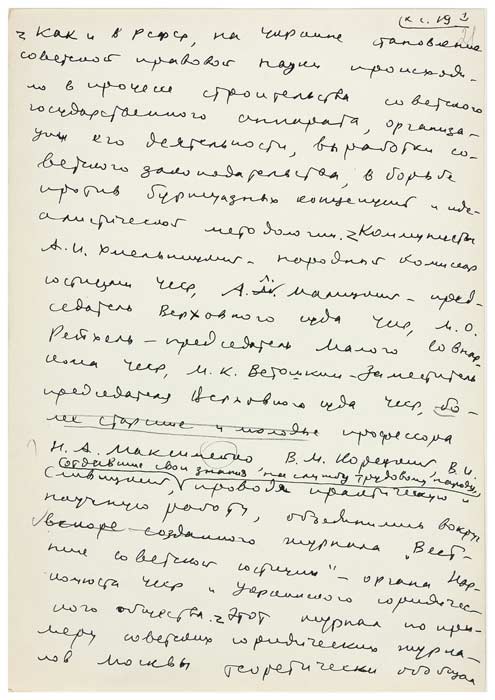 к с. 19 1
21
Как и в РСФСР, на Украине становление
советской правовой науки происходи-
ло в процессе строительства советского
государственного аппарата, организа-
ции его деятельности, выработки со-
ветского законодательства, в борьбе
против буржуазных концепций и иде-
алистической методологии. Коммунисты
А.И. Хмельницкий - народный комиссар
юстиции УССР, А.М. Малицкий - пред-
седатель Верховного суда УССР, М.О.
Рейхель - председатель Малого Совнар-
кома УССР, М.К. Ветошкин - Заместитель
председателя Верховного суда УССР, бо-
лее старшие и молодые профессора
Н.А. Максимейко В.М. Корецкий, В.И.
Создавшие свои знания на службу трудовому народу,
Сливицкий, проводя практическую и
научную работу, объединились вокруг
вскоре созданного журнала „Вест-
ник советской юстиции" - органа Нар-
комюста УССР и Украинского юридичес-
кого общества. Этот журнал по при-
меру советских юридических журна-
лов Москвы теоретически обобщал